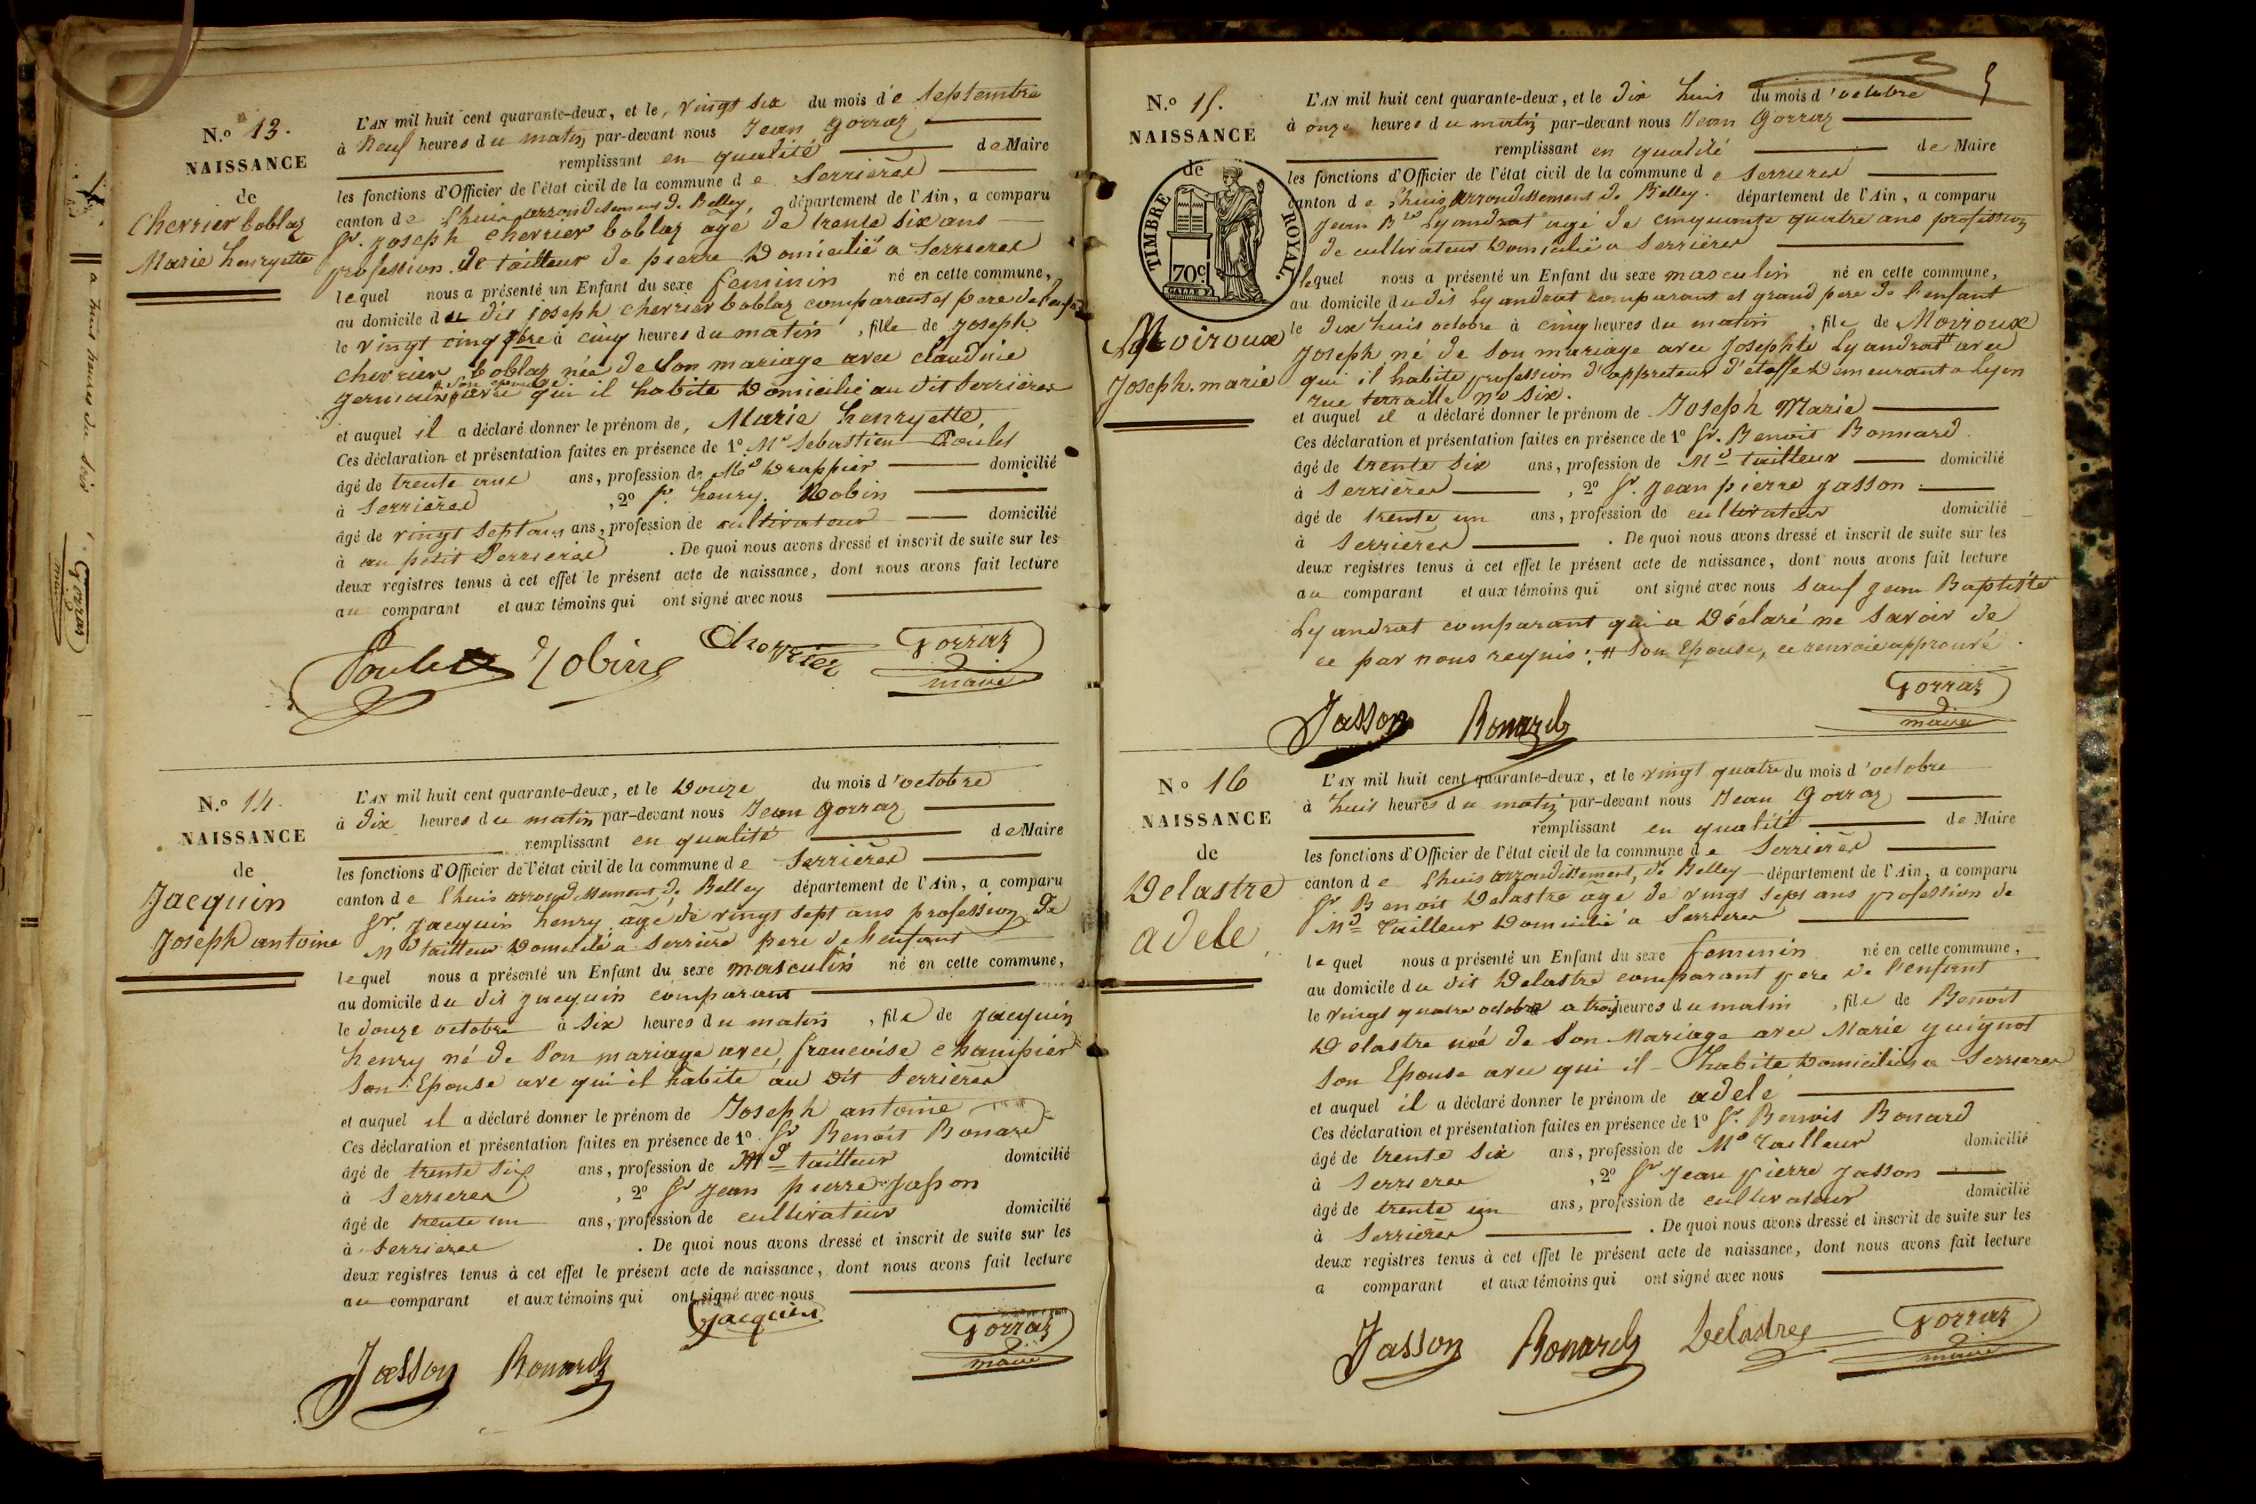 N.º 13.
NAISSANCE
de
Cherrier boblaz
Marie henryette
L'AN mil huit cent quarante-deux, et le, vingt six du mois de septembre
à Neuf heures du matin par-devant nous Jean Gorraz
remplissant en qualité de Maire
les fonctions d'Officier de l'état civil de la commune de Serrières
canton de Lhuis arrondissement de Belley, département de l'Ain, a comparu
Sr. joseph cherrier boblaz agé de trente six ans
profession de tailleur de pierre Domicilié a Serrieres
lequel nous a présenté un Enfant du sexe feminin né en cette commune,
au domicile du dit joseph cherrier boblaz comparant et pere de l'enfant
le vingt cinq 7bre à cinq heures du matin, fille de joseph
cherrier boblaz née de Son mariage avec claudine
germain son epouse avec qui il habite Domicilié au dit Serrières
et auquel il a déclaré donner le prénom de, Marie henryette,
Ces déclaration et présentation faites en présence de 1º Mr Sebastien Poulet
âgé de trente ans, profession de Md Drappier domicilié
à Serrières, 2º Sr henry. Robin
âgé de vingt Sept ans ans, profession de cultivateur domicilié
à au petit Serrieres. De quoi nous avons dressé et inscrit de suite sur les
deux registres tenus à cet effet le présent acte de naissance, dont nous avons fait lecture
au comparant et aux témoins qui ont signé avec nous
Poulet Robin Cherrier Gorraz
maire
N.º 14.
NAISSANCE
de
Jacquin
Joseph antoine
L'AN mil huit cent quarante-deux, et le Douze du mois d'octobre
à dix heures du matin par-devant nous Jean Gorraz
remplissant en qualité de Maire
les fonctions d'Officier de l'état civil de la commune de Serrières
canton de Lhuis arrondissement de Belley département de l'Ain, a comparu
Sr. Jacquin henry, agé de vingt sept ans profession de
Md tailleur Domicilié a Serrière pere de l'enfant
lequel nous a présenté un Enfant du sexe masculin né en cette commune,
au domicile du dit jacquin comparant
le douze octobre à six heures du matin, file de jacquin
henry né de Son mariage avec, francoise champier
Son Epouse ave qui il habite au dit Serrières
et auquel il a déclaré donner le prénom de Joseph antoine
Ces déclaration et présentation faites en présence de 1º. Sr Benoit Bonard
âgé de trente six ans, profession de Md tailleur domicilié
à Serrieres, 2º Sr jean pierre Jasson
âgé de trente un ans, profession de cultivateur domicilié
à Serrieres. De quoi nous avons dressé et inscrit de suite sur les
deux registres tenus à cet effet le présent acte de naissance, dont nous avons fait lecture
au comparant et aux témoins qui ont signé avec nous
Jacquin
Jasson Bonard Gorraz
maire
5
N.º 15.
NAISSANCE
de
TIMBRE ROYAL.
70c
Moiroux
Joseph. marie
L'AN mil huit cent quarante-deux, et le dix huit du mois d'octobre
à onze heures du matin par-devant nous Jean Gorraz
remplissant en qualité de Maire
les fonctions d'Officier de l'état civil de la commune de Serrieres
canton de Lhuis arrondissement de Belley. département de l'Ain, a comparu
Jean Bte Lyandrat agé de cinquante quatre ans profession
de cultivateur Domicilié a Serrières
lequel nous a présenté un Enfant du sexe masculin né en cette commune,
au domicile dudit Lyandrat comparant et grand pere de l'enfant
le dix huit octobre à cinq heures du matin, file de Moiroux
Joseph né de Son mariage avec Josephte Lyandrat # avec
qui il habite profession d'appreteur d'etoffe Demeurant a Lyon
rue terraille no six.
et auquel il a déclaré donner le prénom de Joseph Marie
Ces déclaration et présentation faites en présence de 1º Sr. Benoit Bonnard
âgé de trente six ans, profession de Md tailleur domicilié
à Serrières, 2º Sr. Jean pierre Jasson
âgé de trente un ans, profession de cultivateur domicilié
à Serrières. De quoi nous avons dressé et inscrit de suite sur les
deux registres tenus à cet effet le présent acte de naissance, dont nous avons fait lecture
au comparant et aux témoins qui ont signé avec nous Sauf jean Baptiste
Lyandrat comparant qui a Déclaré ne Savoir de
ce par nous requis: # Son Epouse, ce renvoie approuvé.
Jasson Bonard Gorraz
maire
Nº 16
NAISSANCE
de
Delastre
adele
L'AN mil huit cent quarante-deux, et le vingt quatre du mois d'octobre
à huit heures du matin par-devant nous Jean Gorraz
remplissant en qualité de Maire
les fonctions d'Officier de l'état civil de la commune de Serrières
canton de Lhuis arrondissement, de Belley département de l'Ain, a comparu
Sr Benoit Delastre age de vingt sept ans profession de
Md Tailleur Domicilié a Serrieres
lequel nous a présenté un Enfant du sexe feminin né en cette commune,
au domicile du dit Delastre comparant pere de l'enfant
le vingt quatre octobre a trois heures du matin, file de Benoit
Delastre née de Son Mariage avec Marie guignot
Son Epouse avec qui il habite Domiciliés a Serrieres
et auquel il a déclaré donner le prénom de adele
Ces déclaration et présentation faites en présence de 1º Sr. Benoit Bonard
âgé de trente six ans, profession de Md Tailleur domicilié
à Serrieres, 2º Sr Jean pierre Jasson
âgé de trente un ans, profession de cultivateur domicilié
à Serrières. De quoi nous avons dressé et inscrit de suite sur les
deux registres tenus à cet effet le présent acte de naissance, dont nous avons fait lecture
a comparant et aux témoins qui ont signé avec nous
Jasson Bonard Delastre Gorraz
maire